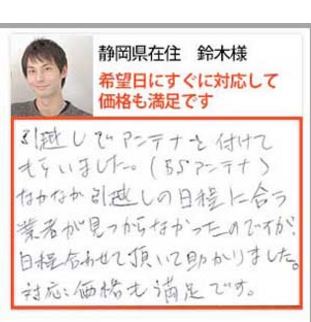 静岡県在住　鈴木様
希望日にすぐに対応して
価格も満足です
引越しでアンテナを付けて
もらいました。(BSアンテナ)
なかなか引越しの日程に合う
業者が見つからなかったのですが、
日程合わせて頂いて助かりました。
対応、価格も満足です。